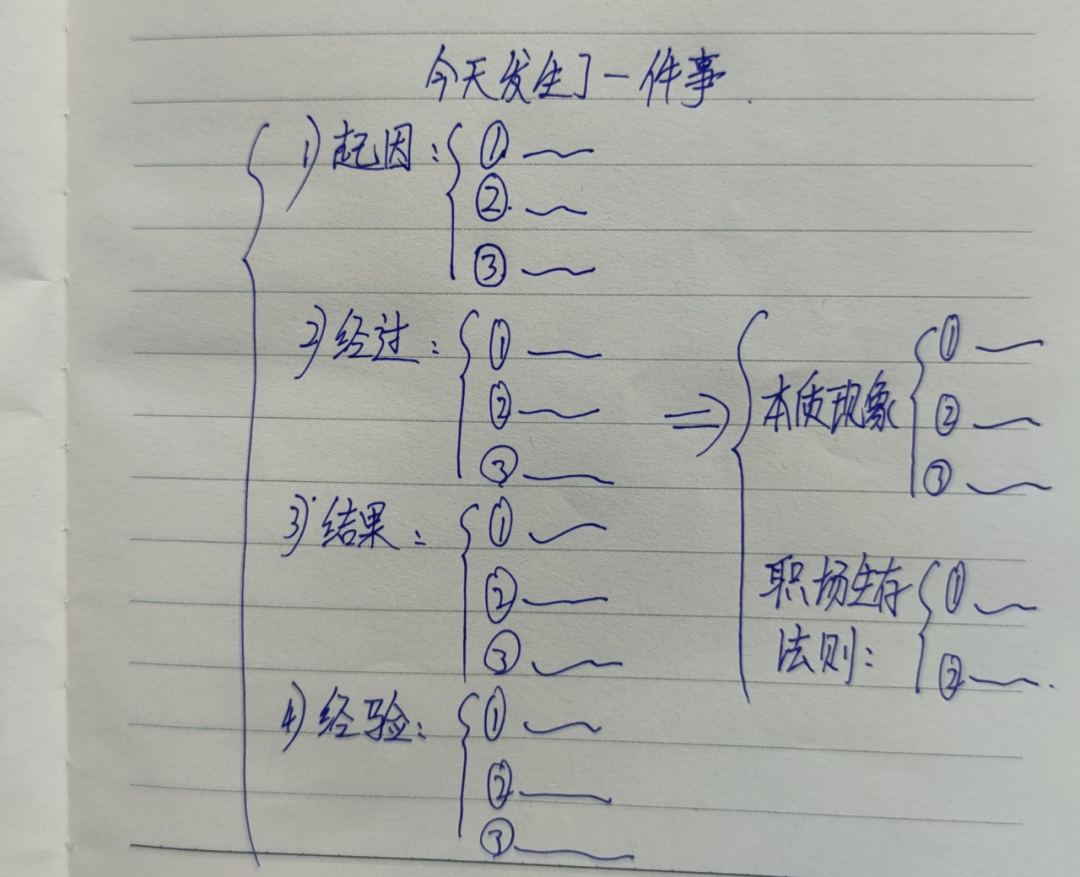 今天发生了一件事.
1) 起因: ①
②
③
2) 经过: ①
②
③
3) 结果: ①
②
③
4) 经验: ①
②
③
⇒
本质现象 ①
②
③
职场生存
法则: ①
②